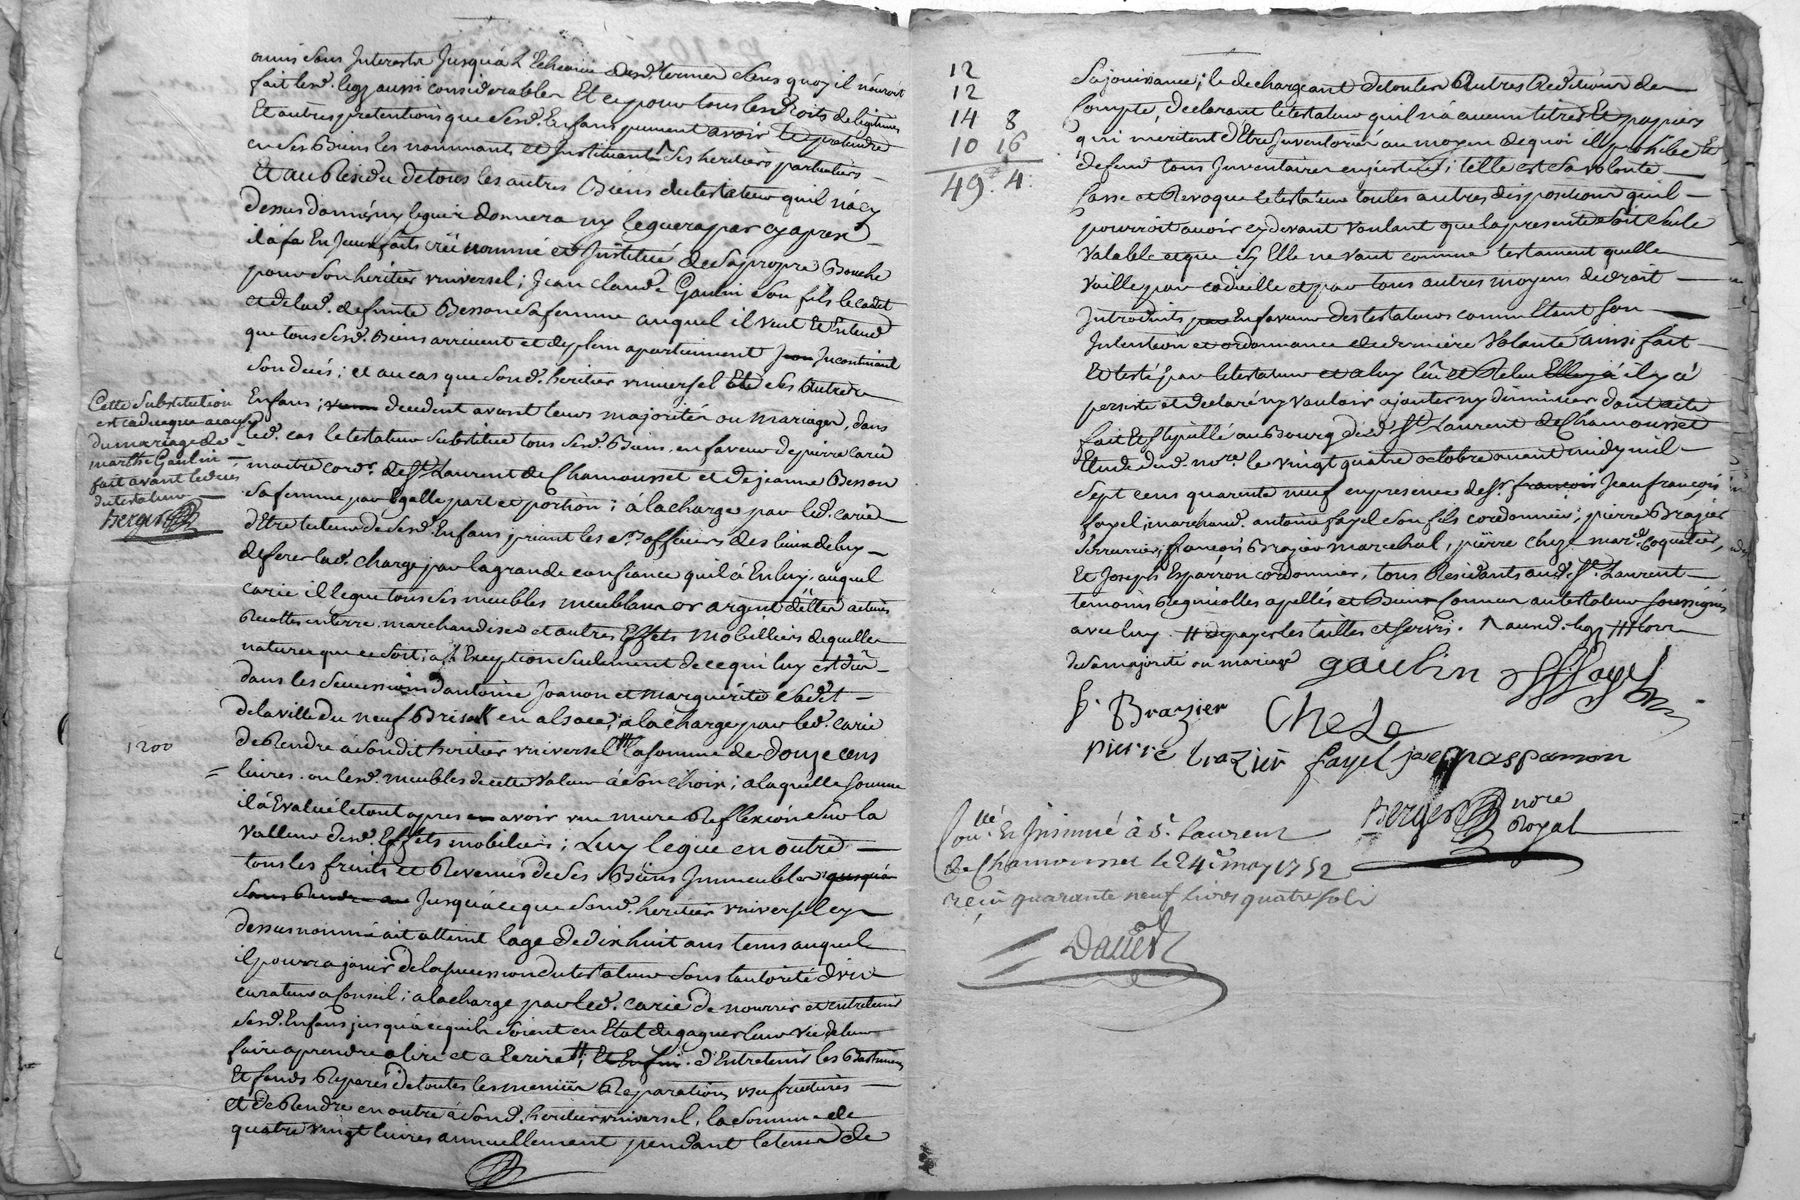 amis sans Interestz Jusqu'à L'Echeance desd. termes sans quoy il n'auroit
fait lesd. legs aussi considerables Et ce pour tous les droits de légitimes
Et autres pretentions que sesd. Enfans peuvent avoir Et pretendre
en ses Biens les nommants et Instituants ses heritiers particuliers
Et au Residu de tous les autres Biens du testateur qu'il n'a cy
dessus donnés ny legués donnera ny leguera par cy apres
il a fa En Jceux faits créé nommé et Jnstitué de sa propre Bouche
pour son heritier vniversel; Jean claude Gaulin son fils le cadet
et de lad. defunte Besson sa femme auquel il veut Et Entend
que tous sesd. Biens arrivent et de plein apartiennent Jncontinant
son decés; et au cas que sond. heritier vniversel Et ses Autres
Enfans; decedent avant leurs majorités ou mariages, dans
led. cas le testateur substitue tous sesd. Biens en faveur de pierre carié
maitre cord.r de St Laurent de Chamousset et de jeanne Besson
sa femme par Egalle part et portion; à la charge par led. carié
d'Etre tuteur de sesd. Enfans priant les srs officiers des lieux de luy
deferer lad. charge par la grande confiance qu'il a En luy, auquel
carié il legue tous ses meubles meublans or argent dettes actives
Recoltes en terre marchandises et autres Effets Mobilliers de quelles
natures que ce soit; à l'Exception seulement de ce qui luy est dû
dans les successions d'antoine Joanon et marguerite Cadet
de la ville du neuf Brisak en alsace; à la charge par led. carié
de Rendre à sondit heritier vniversel la somme de douze cens
livres ou lesd. meubles de cette valeur à son choix; a laquelle somme
il a Evalué le tout apres avoir une mure Reflexion sur la
Valleur desd. Effets mobiliers; Luy legue en outre
tous les fruits et Revenus de ses Biens Jmmeubles jusqu'à
sans Rendre Jusqu'à ce que sond. heritier vniversel cy
dessus nommé ait atteint l'age de dix huit ans tems auquel
il pourra jouir de la succession du testateur sans l'autorité d'un
curateur a Conseil; a la charge par led. carié de nourrir et entretenir
sesd. Enfans jusqu'a ce qu'ils soient en Etat de gagner leur vie de leur
faire aprendre a lire et a Ecrire # Et Enfin d'Entretenir les Bastimens
Et fonds Reparés de toutes les menües Reparations usufruitieres
et de Rendre en outre à sond. heritier vniversel, la somme de
quatre vingt livres annuellement pendant le tems de
Cette Substitution
est caduque a cause
du mariage de
marthe Gaulin
fait avant le deces
du testateur
Berger
1200
12
12
14 8
10 16
49# 4s
sa jouissance; le dechargeant de toutes Autres Redition de
Compte, declarant le testateur qu'il n'a aucun titres Et papiers
qui meritent d'Etre Jnventoriés au moyen de quoi il prohibe Et
defend tous Jnventaires en justice; telle est sa volonté
Casse et Revoque le testateur toutes autres dispositions qu'il
pourroit avoir cy devant voulant que la presente soit seule
Valable et que sy Elle ne vaut comme testament quelle
vaille par codicille et par tous autres moyens de droit
Jntroduits par En faveur des testateurs commettant son
Jntention et ordonnance de derniere Volonté ainsi fait
Et testé par le testateur et a luy lû et Relu Elle il y a
persisté et declaré ny vouloir ajouter ny diminuer dont acte
fait Et Stipullé au Bourg dud. St Laurent de Chamousset
Etude dud. nore. le vingt quatre octobre avant midy mil
sept cens quarente neuf en presence de Sr francois Jean francois
fayel, marchand. antoine fayel son fils cordonnier; pierre Brazier
serrurier, françois Brazier marechal, pierre Cheze mard. Coquetier,
Et Joseph Esparron cordonnier, tous Residants aud. St. Laurent
temoins Requis et apellés et Bien Connus au testateur soussignés
avec luy. # de payer les tailles et servis. A aud. legs ### lors
de sa majorité ou mariage Gaulin JFfayel
f. Brazier Cheze
pierre brazier fayel joseph asparron
Berger nore
Royal
Coll.é Et Jnsinué à St. Laurent
de Chamousset le 24e may 1752
reçu quarante neuf livres quatre sols
Dauet